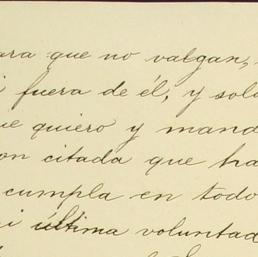 ara que no valgan,
i fuera de él, y solo
ue quiero y mand
on citada que ha
cumpla en todo
i última voluntad